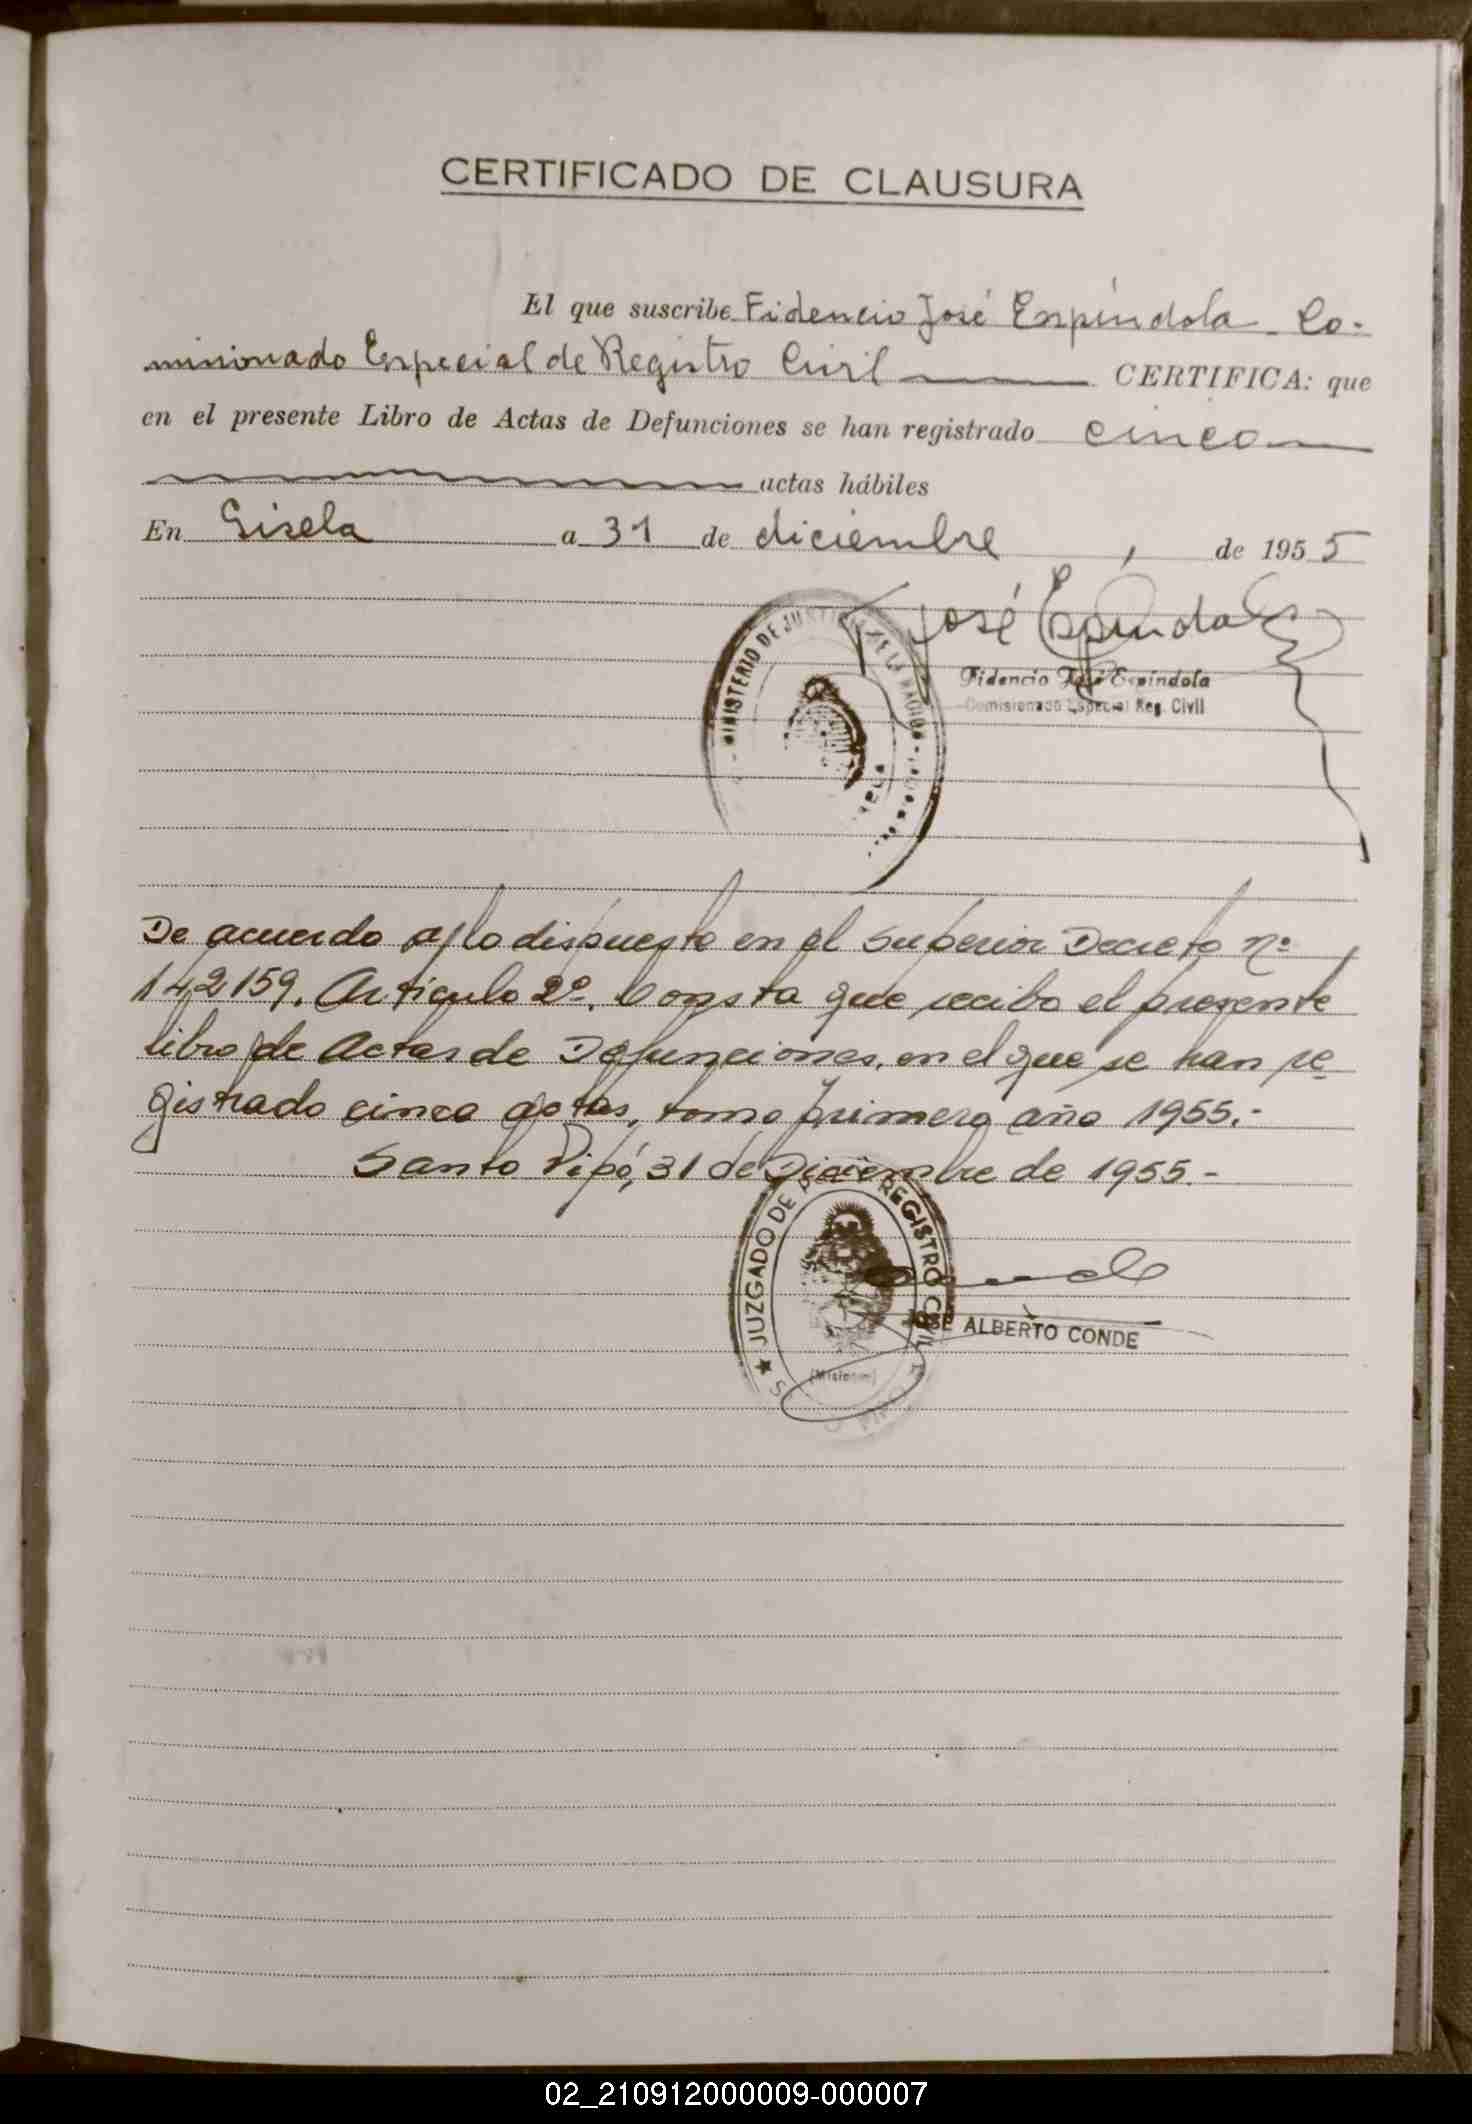 CERTIFICADO DE CLAUSURA
El que suscribe Fidencio José Espíndola - Co-
misionado Especial de Registro Civil CERTIFICA: que
en el presente Libro de Actas de Defunciones se han registrado cinco
actas hábiles
En Gisela a 31 de diciembre, de 1955
José Espíndola
MINISTERIO DE JUSTICIA DE LA NACION
Fidencio José Espíndola
Comisionado Especial Reg. Civil
De acuerdo a lo dispuesto en el Superior Decreto nº
142159. Artículo 2º. Consta que recibo el presente
libro de Actas de Defunciones, en el que se han re-
gistrado cinco actas, tomo primero año 1955.-
Santo Pipó, 31 de Diciembre de 1955.-
JUZGADO DE REGISTRO CIVIL
(Misiones)
JOSE ALBERTO CONDE
02_210912000009-000007